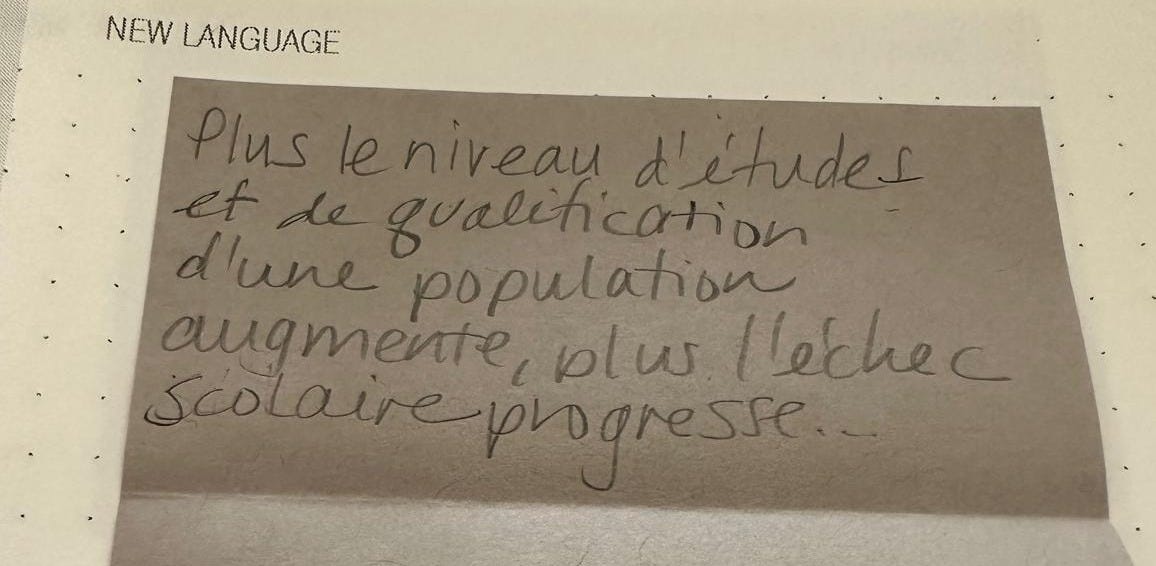 NEW LANGUAGE
Plus le niveau d'études
et de qualification
d'une population
augmente, plus l'échec
scolaire progresse...